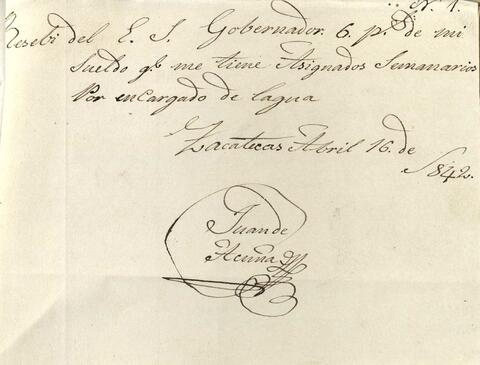 N. 1.
Resebi del E. S. Gobernador 6. ps. de mi
sueldo qe. me tiene Asignados Semanarios
Por encargado de lagua
Zacatecas Abril 16. de
1842.
Juan de
Acuña